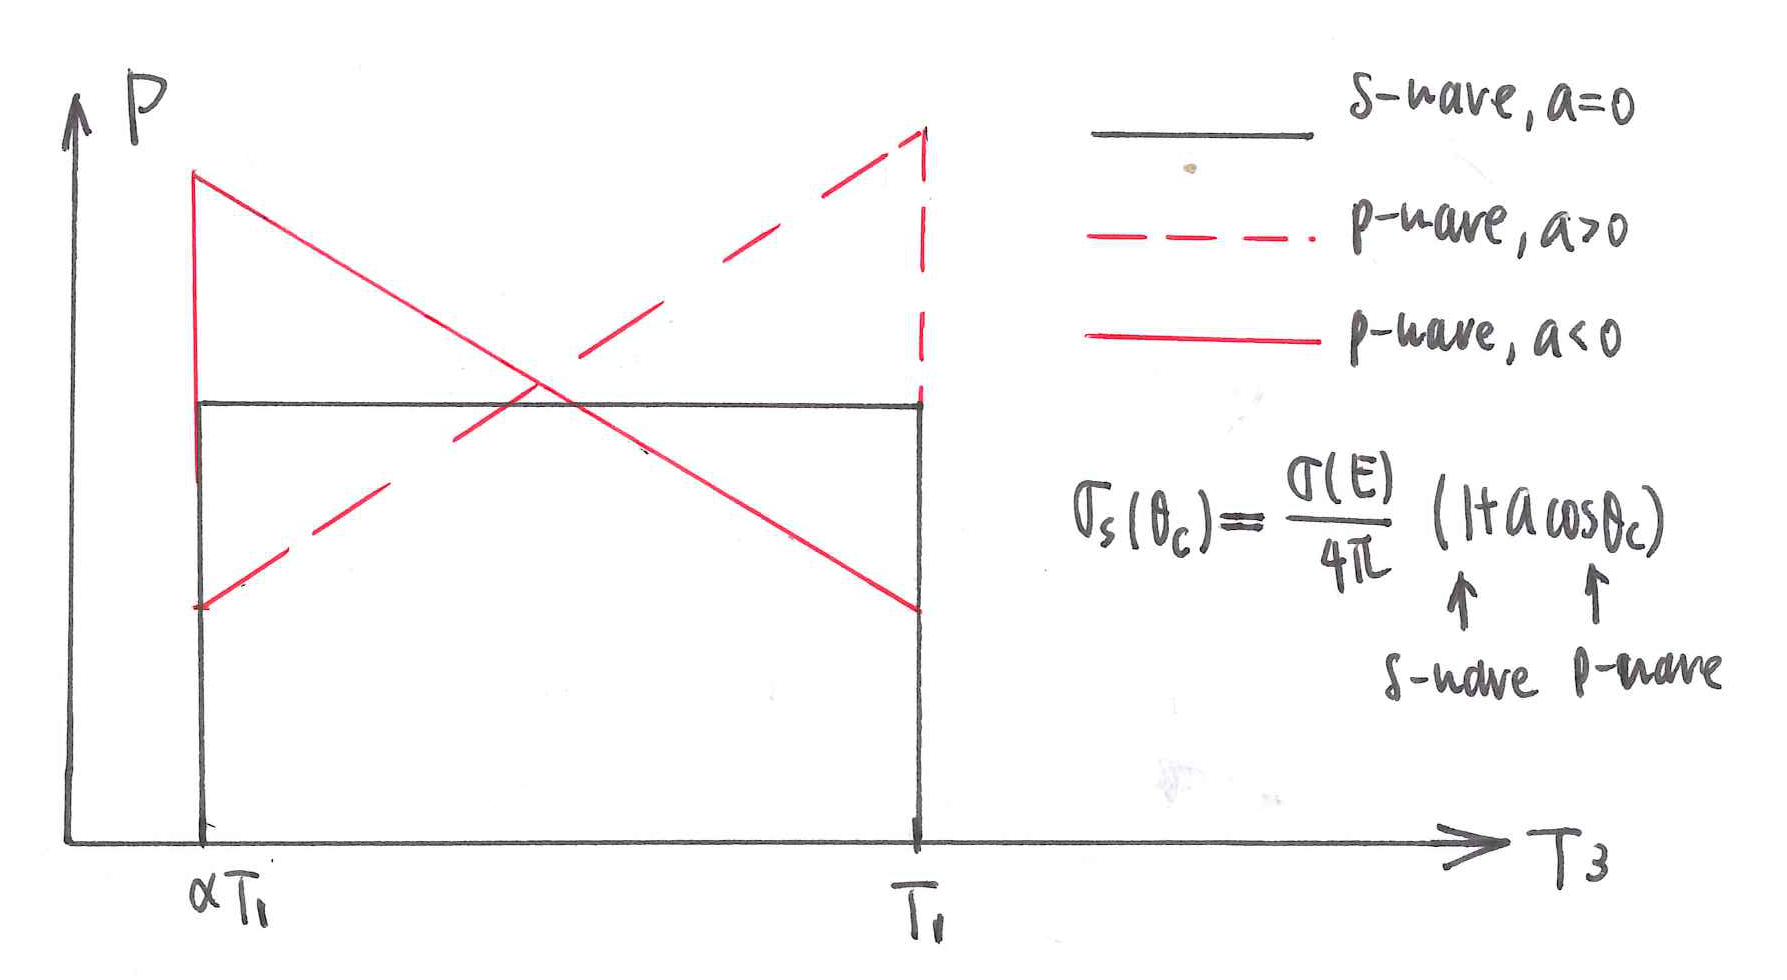 P
s-wave, a=0
p-wave, a>0
p-wave, a<0
σs(θc) = σ(E)/4π (1+acosθc)
↑ ↑
s-wave p-wave
T3
αT1 T1